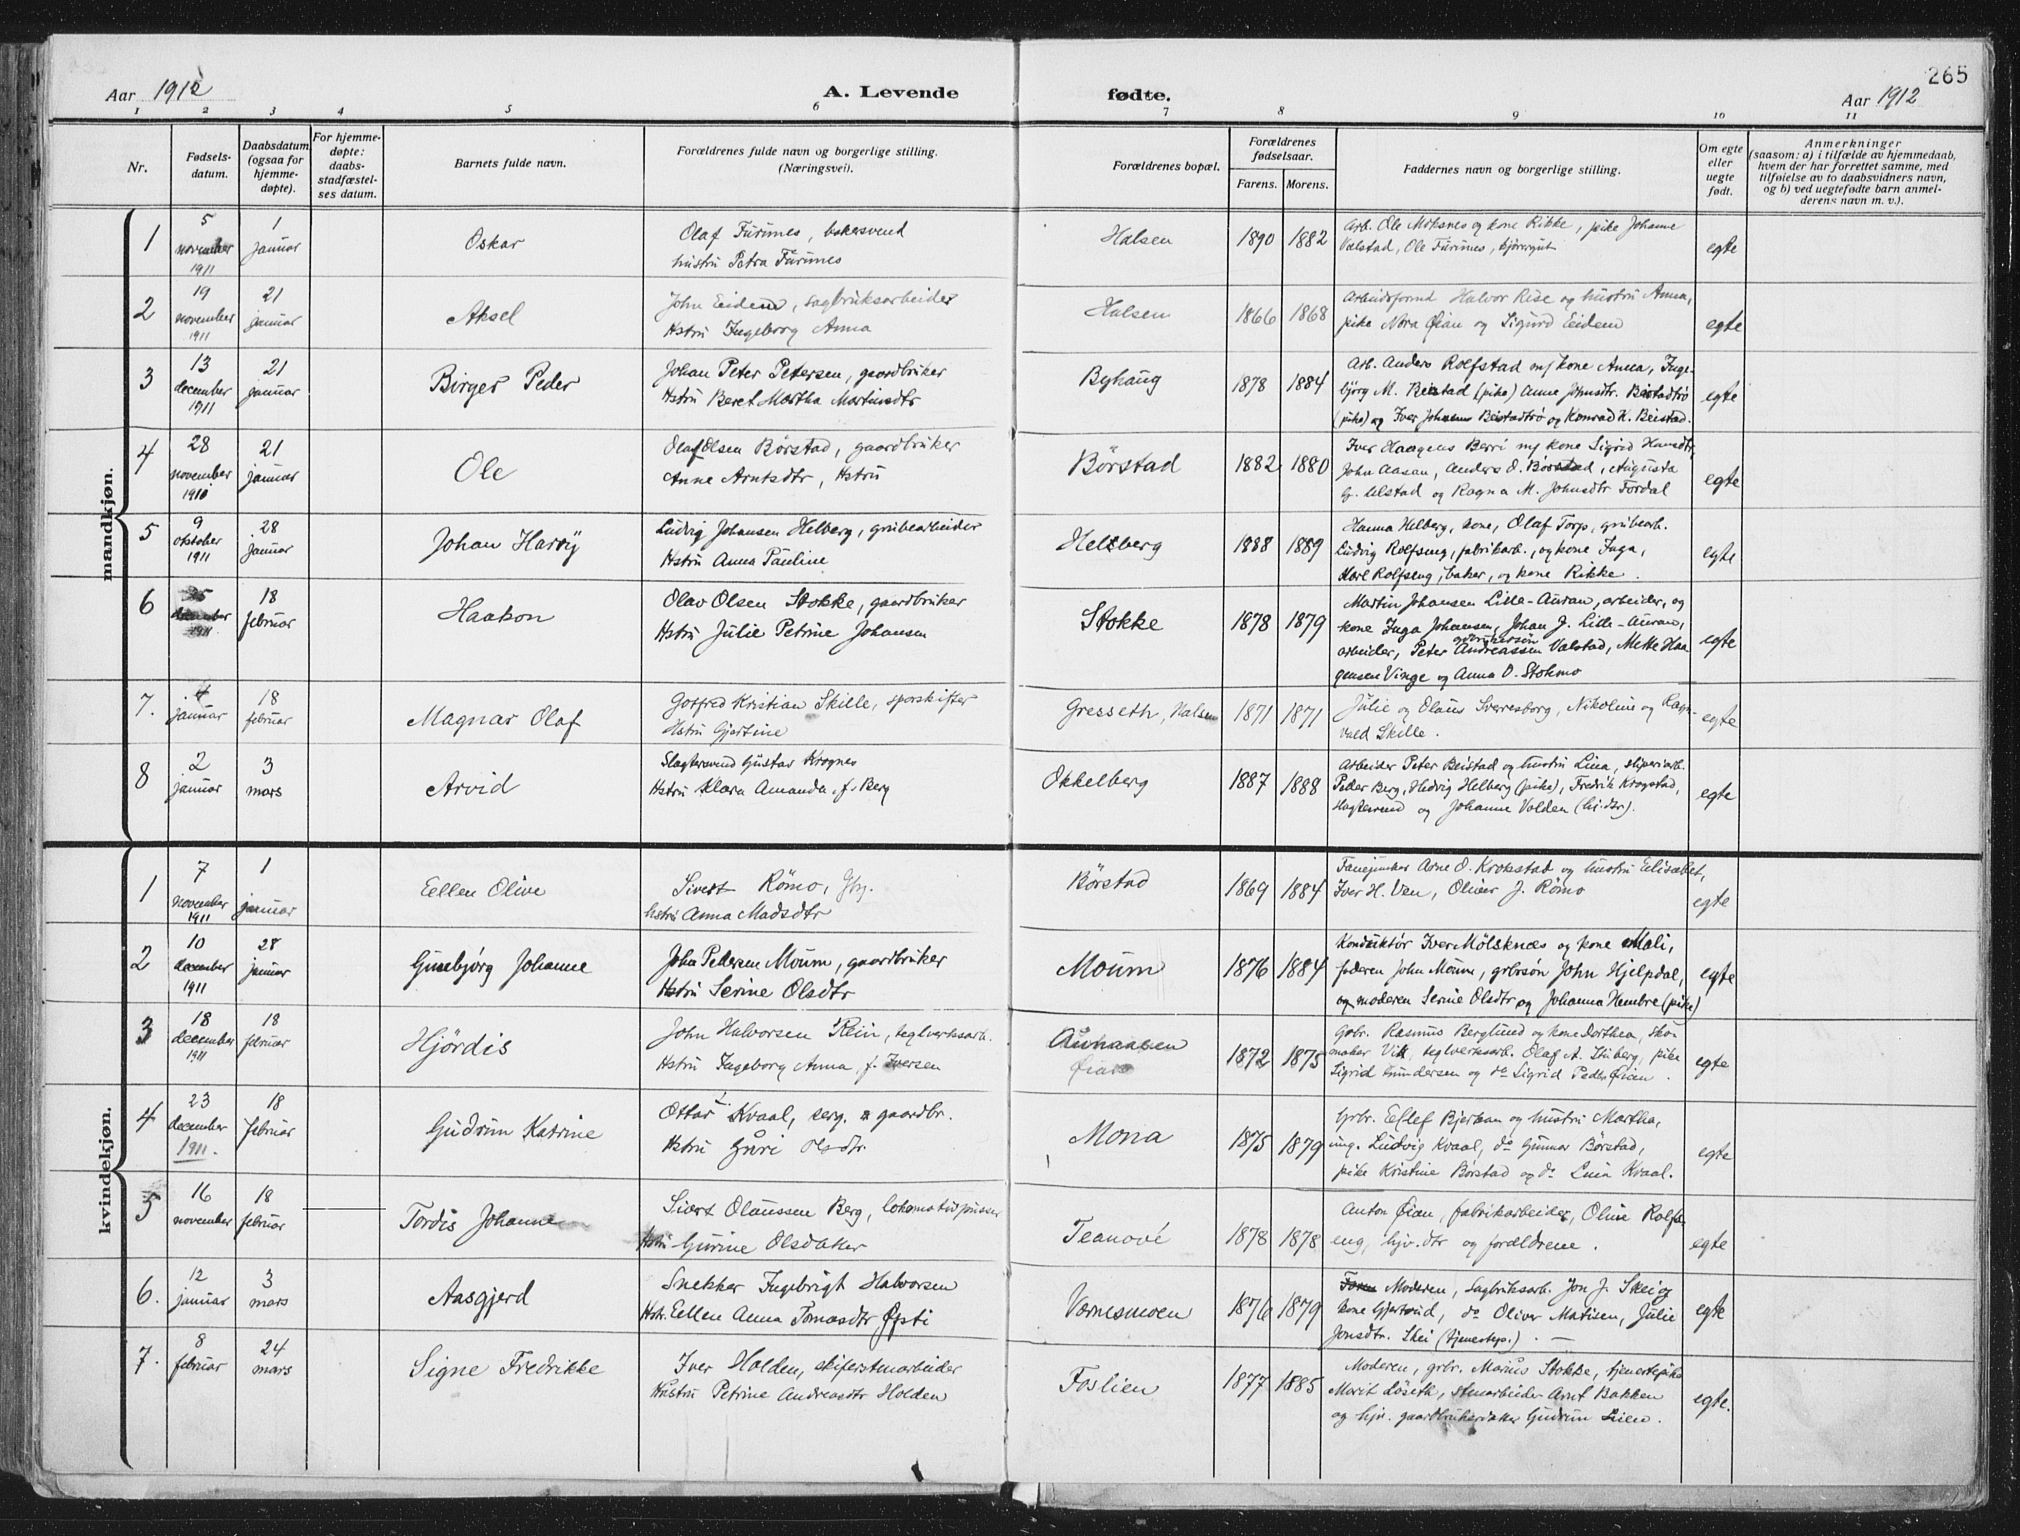 265
Aar 1912
A. Levende
fødte.
Aar 1912
1 2 3 4 5 6 7 8 9 10 11
Nr.
Fødsels-
datum.
Daabsdatum
(ogsaa for
hjemme-
døpte).
For hjemme-
døpte:
daabs-
stadfæstel-
ses datum.
Barnets fulde navn.
Forældrenes fulde navn og borgerlige stilling.
(Næringsvei).
Forældrenes bopæl.
Forældrenes
fødselsaar.
Farens. Morens.
Faddernes navn og borgerlige stilling.
Om egte
eller
uegte
født.
Anmerkninger
(saasom: a) i tilfælde av hjemmedaab,
hvem der har forrettet samme, med
tilføielse av to daabsvidners navn,
og b) ved uegtefødte barn anmel-
derens navn m. v.).
mandkjøn.
1
5
november
1911
1
januar
Oskar
Olaf Furunes, bakersvend
hustru Petra Furunes
Halsen
1890 1882
Arb. Ole Moksnes og kone Rikke, pike Johanne
Valstad, Ole Furunes, kjøregut
egte
2
19
november
1911
21
januar
Aksel
John Eidem, sagbruksarbeider
Hstru Ingeborg Anna
Halsen
1866 1868
Arbeidsformd Halvor Rise og hustru Anna,
pike Nora Øian og Sigurd Eidem
egte
3
13
december
1911
21
januar
Birger Peder
Johan Peter Petersen, gaardbruker
Hstru Beret Martha Martinsdtr
Byhaug
1878 1884
Arb. Anders Rolfstad m/ kone Anna, Inge-
björg M. Beistad (pike) Anne Johnsdtr. Beistadtrø
(pike) og Iver Johansen Beistadtrø og Konrad K. Beistad.
egte
4
28
november
1910
21
januar
Ole
Olaf Olsen Børstad, gaardbruker
Anne Arntsdtr, Hstru
Börstad
1882 1880
Iver Haagens Berri m/ kone Sigrid Hansdtr,
John Aasan, Anders O. Børstad, Augusta
G. Ulstad og Ragna M. Johnsdtr Fordal
egte
5
9
oktober
1911
28
januar
Johan Harry
Ludvig Johansen Helberg, grubearbeider
Hstru Anna Pauline
Helsberg
1888 1889
Hanna Helberg, kone, Olaf Torp, grubearb.
Ludvig Rolfseng, fabrikarb., og kone Inga,
Karl Rolfseng, baker, og kone Rikke.
egte
6
25
december
1911
18
februar
Haakon
Olav Olsen Stokke, gaardbruker
Hstru Julie Petrine Johansen
Stokke
1878 1879
Martin Johansen Lille-Auran, arbeider, og
kone Inga Johansen, Johan J. Lille-Auran,
arbeider, Peter Andreassen Valstad, Mette Haa
gensen Vinge og Anna O. Stokmo
egte
7.
4
januar
18
februar
Magnar Olaf
Gotfred Kristian Skille, sporskifter
Hstru Gjertine
Gresseth, Halsen
1871 1871
Julie og Olaus Sverresborg, Nikoline og Ragn-
vald Skille.
egte
8
2
januar
3
mars
Arvid
Slagtersvend Gustav Krognes
Hstru Klara Amanda f. Berg
Okkelberg
1887 1888
Arbeider Peter Beistad og hustru Lina, sliperiarb.
Peder Berg, Hedvig Helberg (pike), Fredrik Krogstad,
slagtersvend og Johanne Volden (hj. dtr).
egte
kvindekjøn.
1
7
november
1911
1
januar
Eellen Olive
Sivert Römo, Gby.
hstru Anna Madsdtr
Börstad
1869 1884
Fanejunker Arne O. Krokstad og hustru Elisabet,
Iver H. Ven, Oliver J. Römo
egte
2
10
december
1911
28
januar
Gunebjørg Johanne
John Pedersen Moum, gaardbruker
Hstru Serine Olsdtr
Moum
1876 1884
Konduktør Iver Mölsknæs og kone Mali,
faderen John Moum, grbrsøn John Hjelpdal,
og moderen Serine Olsdtr og Johanna Hembre (pike)
egte
3
18
december
1911
18
februar
Hjördis
John Halvorsen Rein, teglverksarb.
Hstru Ingeborg Anna, f. Iversen
Aunaasen
Øian
1872 1875
Grbr. Rasmus Berglund og kone Dorthea, sko
maker Vik, teglverksarb. Olaf A. Stuberg, pike
Sigrid Gundersen og do Sigrid Peders Øian.
egte
4
23
december
1911.
18
februar
Gudrun Katrine
Ottar Kvaal, serg. & gaardbr.
Hstru Guri Olsdtr.
Mona
1875 1879
Grbr. Ellef Bjerkan og hustru Martha,
ung. Ludvig Kvaal, do Gunnar Börstad,
pike Kristine Börstad og do Lina Kvaal.
egte
5
16
november
18
februar
Tordis Johanne
Sivert Olaussen Berg, lokomotivpusser
Hstr Gurine Olsdatter
Teanovè
1878 1878
Anton Øian, fabrikarbeider, Oline Rolfs
eng, hjv. dtr og forældrene.
egte
6.
12
januar
3
mars
Aasgjerd
Snekker Ingebrigt Halvorsen
Hstr. Eellen Anna Tomasdtr Øfsti
Værnesmoen
1876 1879
Moderen, Sagbruksarb. Jon J. Skei og
kone Gjertrud, do Oliver Matisen, Julie
Jonsdtr. Skei (tjenestep.). —
egte
7.
8
februar
24
mars
Signe Fredrikke
Iver Holden, skiferstenarbeider
Hustru Petrine Andreasdtr Holden
Foslien
1877 1885
Moderen, grbr. Marius Stokke, tjenestepike
Marit Löseth, stenarbeider Arnt Bakken
og hjv. gaardbrukerdatter Gudrun Lien.
egte.